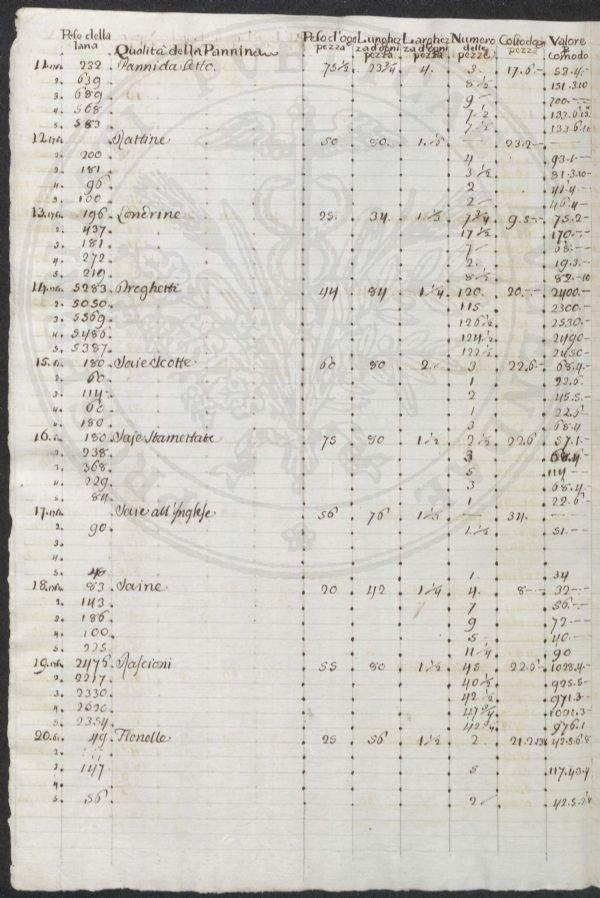 Peso della lana. Qualità della Pannina Peso d'ogni pezza Lunghez za d'ogni pezza Larghez za d'ogni pezza Numero delle pezze Costo d'ogni pezza Valore
11. 232. Panni da Letto. 75 1/2 23 3/4 4. 3. 17.6.- 52.4.-
2. 639 8 1/2 151.3.10
3. 689 9
4. 568 7 1/2
5. 583 7 1/2
12. Rattine 50 80. 23.2.-
2. 200 4 93.1.-
3. 181 3 1/2 81.3.10
4. 96 2
5. 100 2 46.4
13. 196 Londrine 25. 34. 7 3/4 9.5.- 75.2-
2. 437 17 1/2 170.-.-
3. 181 7 68.-
4. 272 2. 19.3.-
5. 219 8 1/2 82.-10
14. 5283 Breghetti 44 84 1 1/4 120. 20.- 2400.-
2. 5050 115 2300.-
3. 5569 126 1/2 2530.-
4. 5486 124 1/2 2490-
5. 5387. 122 1/2 2450-
15. 180 Saie Scotte 60 80 2. 3 22.6- 68.4.-
2. 60 1 22.6
3. 114 2 45.5.-
4. 60 1 22.6
5. 180 3 68.4
16. 180 Saje Stamettate 75 80 1 1/2 2 1/2 22.6 57.1.-
2. 238 3 68.4
3. 368 5 114
4. 229 3 68.4.-
5. 84 1 22.6
17. Saie all'Inglese 56 76 34.
2. 90. 1 1/2 51.-
3.
5. 48 1. 34
18. 83 Saine 20 42 1 1/4 4. 8.- 32.-
2. 143 7 56.-
3. 186 9 72.-
4. 100 5 40.-
5. 225 11 1/4 90
19. 2475 Rascioni 55 80 1 1/2 45 22.6- 1028.4-
2. 2217 40 1/2 925.5-
3. 2330 42 1/2 971.3-
4. 2620 47 3/4 1091.3-
5. 2354 42 3/4 976.1
20. 49 Flenelle 25 56 1 1/2 2 21.2 42.5.6.8
3. 147 5 117.43.4
4.
5. 56 2